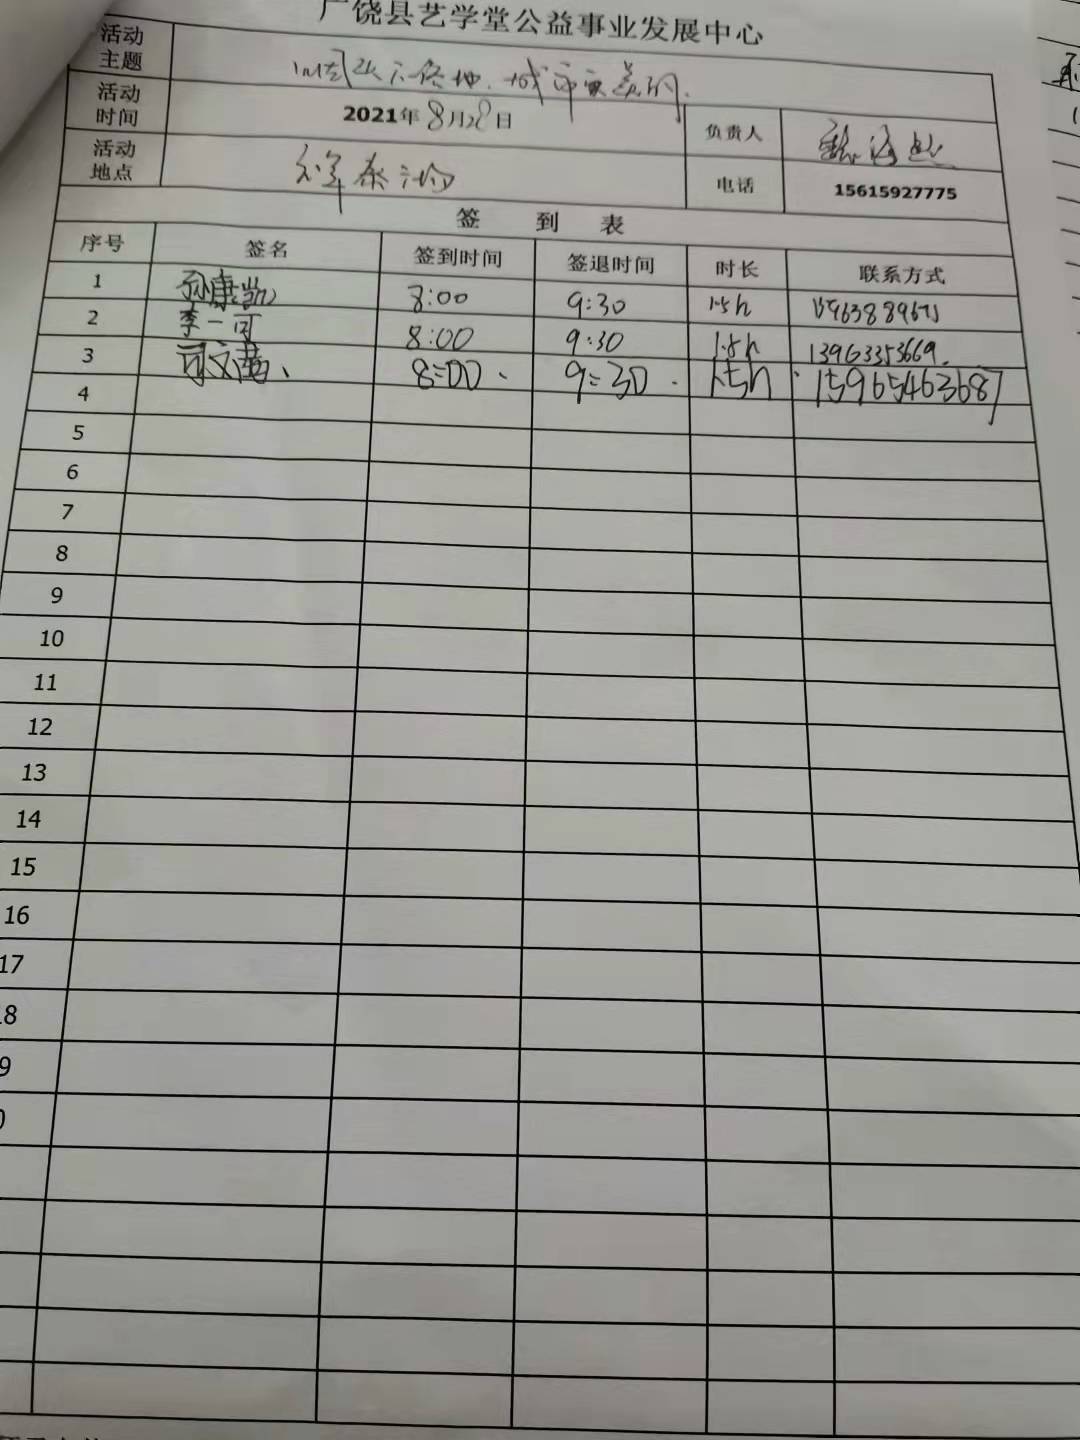 广饶县艺学堂公益事业发展中心
活动主题 烟头不落地.城市更美的.
活动时间 2021年8月28日 负责人
活动地点 电话 15615927775
签 到 表
序号 签名 签到时间 签退时间 时长 联系方式
1 孙康凯 8:00 9:30 1.5h
2 李一可 8:00 9:30 1.5h 13963353669.
3 8:00. 9:30. 1.5h. 15965463687
4
5
6
7
8
9
10
11
12
13
14
15
16
17